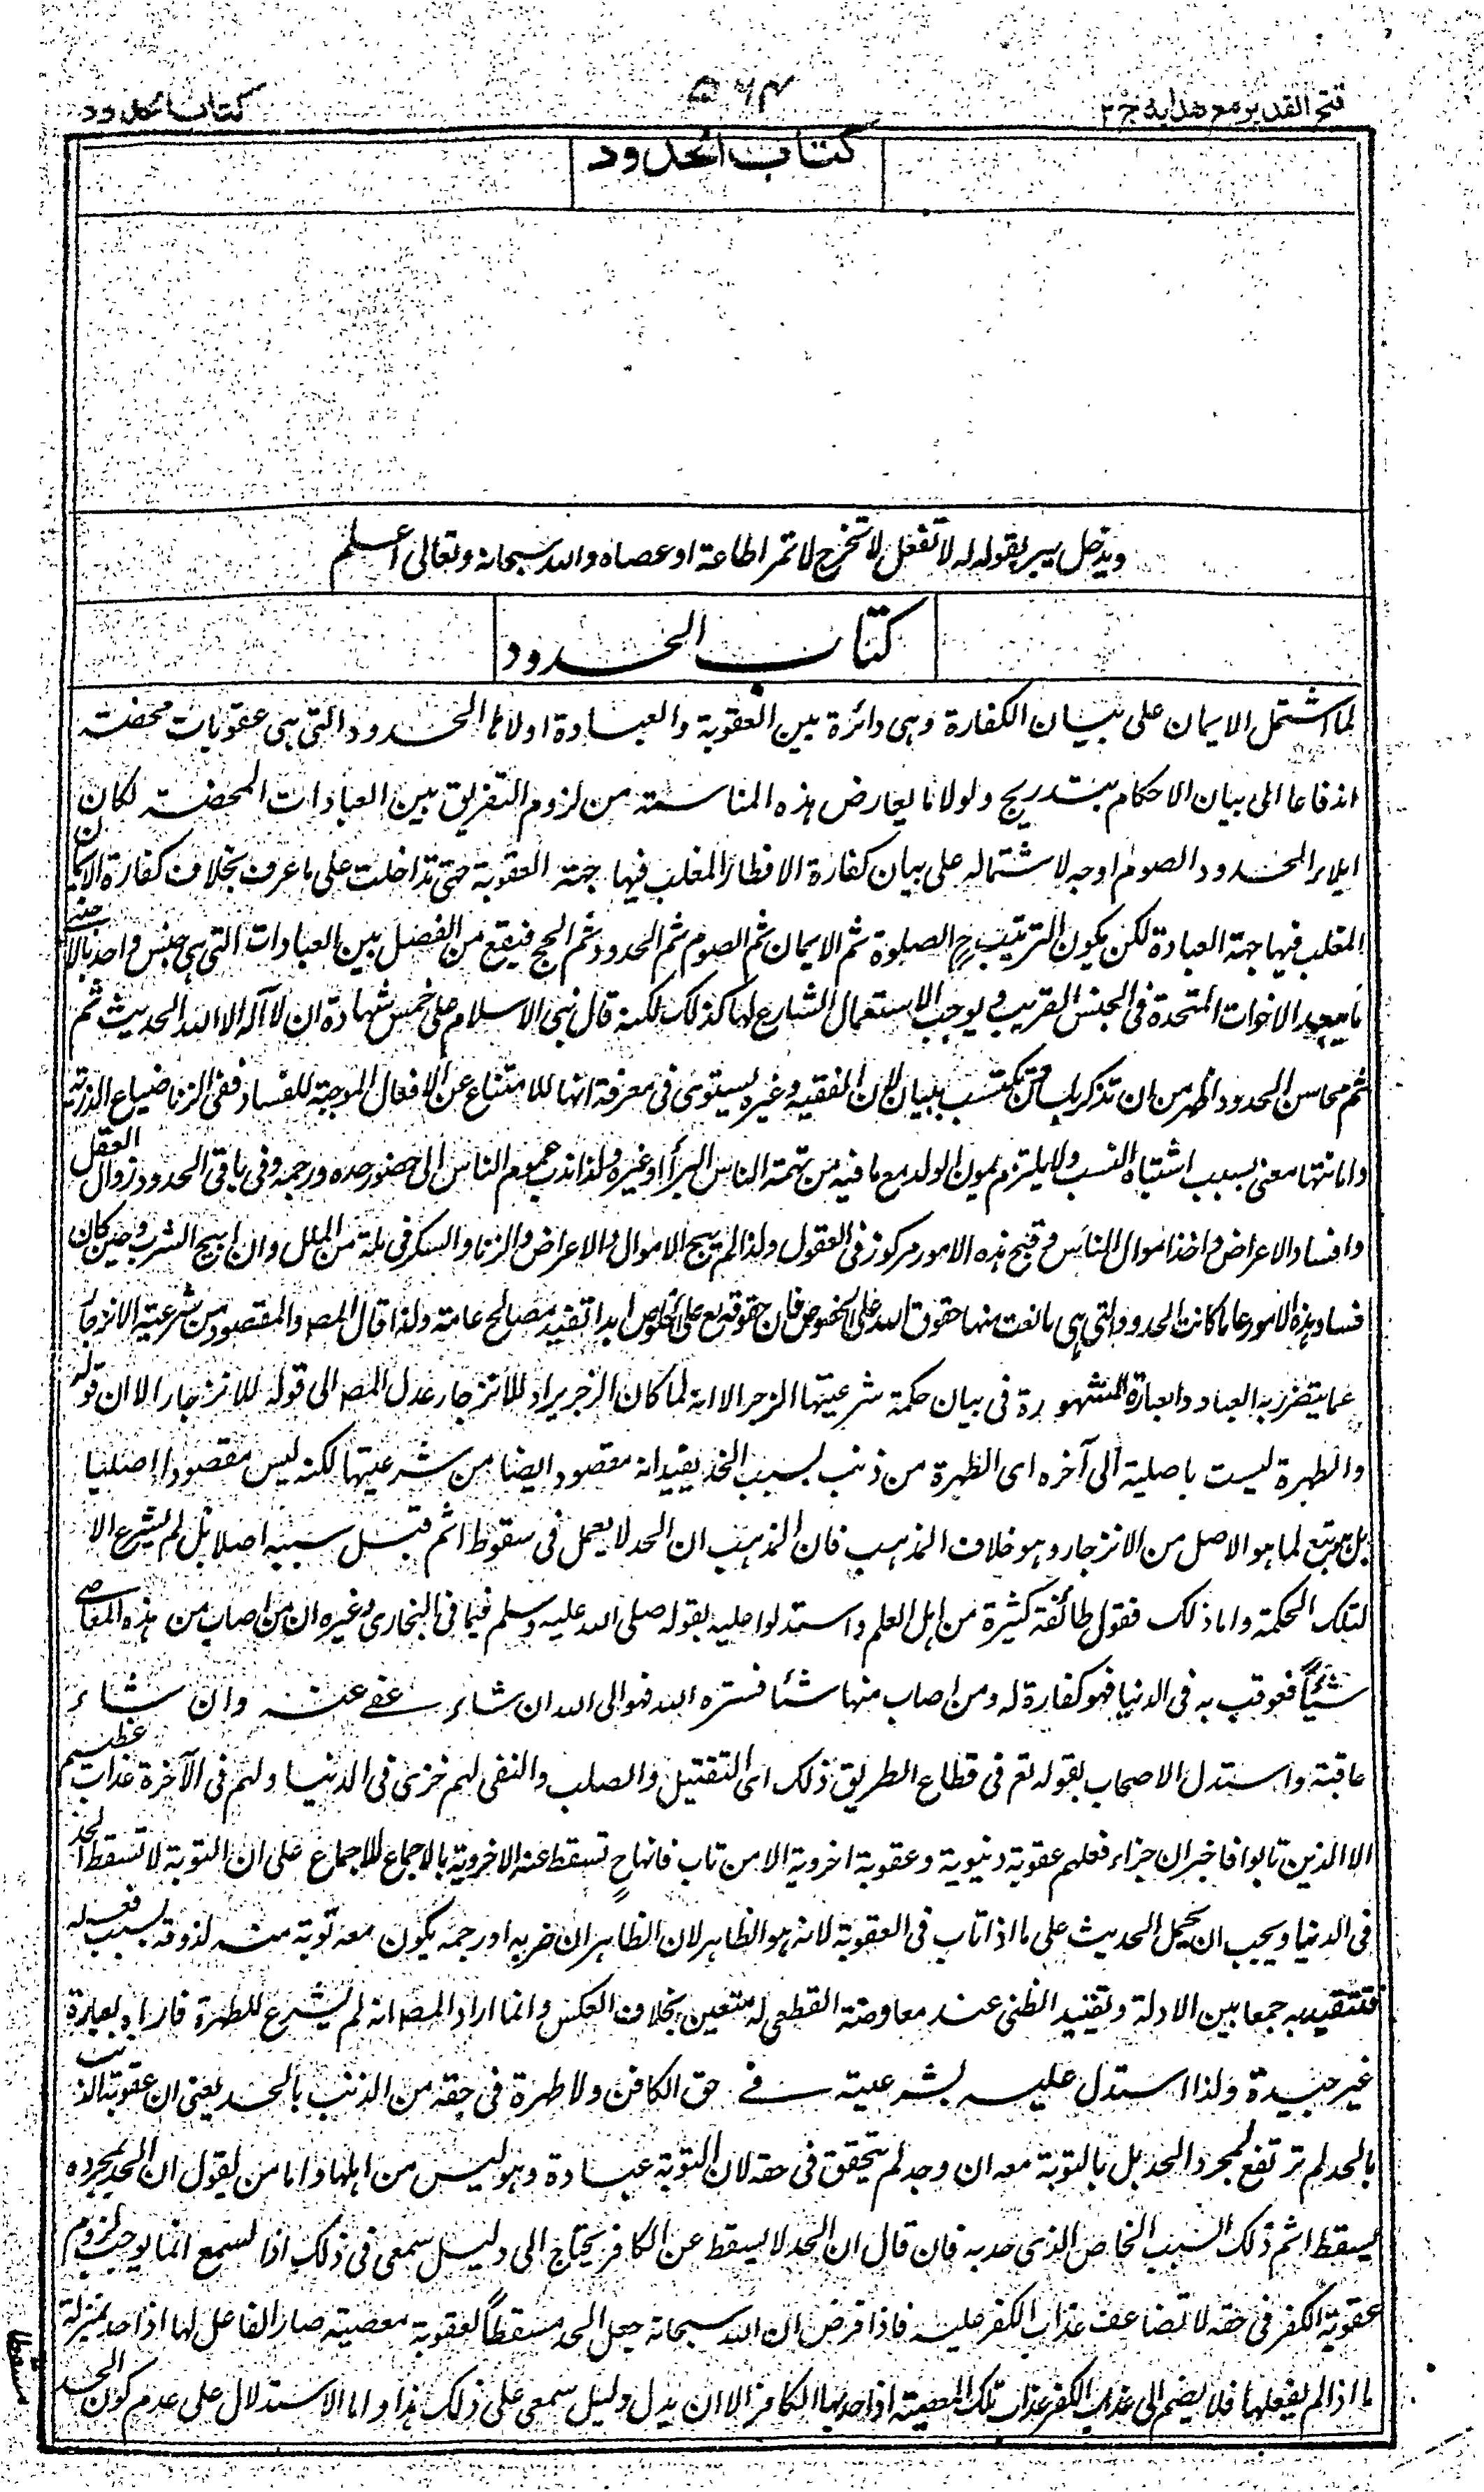 فتح القدير مع هداية ج ٢
كتاب الحدود
كتاب الحدود
ويدخل يبر بقوله له لا تفعل لا تخرج لا تمر اطاعة او عصاه والله سبحانه وتعالى اعلم
كتاب الحدود
لما اشتمل الايمان على بيان الكفارة وهى دائرة بين العقوبة والعبادة اولاها الحدود التى هى عقوبات محضة
اندفاعا الى بيان الاحكام بتدريج ولولا ما يعارض هذه المناسبة من لزوم التفريق بين العبادات المحضة لكان
ايلاء الحدود الصوم اوجه لاشتماله على بيان كفارة الافطار المغلب فيها جهة العقوبة حتى تداخلت على ما عرف بخلاف كفارة الايمان
المغلب فيها جهة العبادة لكن يكون الترتيب ح الصلوة ثم الايمان ثم الصوم ثم الحدود ثم الحج فيقع من الفصل بين العبادات التى هى جنس واحد بالاجنبى
ما يبعد الاخوات المتحدة فى الجنس القريب ويوجب الاستعمال الشارع لها كذلك لكنه قال بنى الاسلام على خمس شهادة ان لا اله الا الله الحديث ثم
ثم محاسن الحدود اظهر من ان تذكر ببيان لان الفقيه وغيره يستوى فى معرفة انها للامتناع عن الافعال الموجبة للفساد ففى الزنا ضياع الذرية
واماتتها معنى بسبب اشتباه النسب ولا يلتزم بمون الولد مع ما فيه من تهمة الناس البرأ او غيره ولذا ندب عموم الناس الى حضور حده ورجمه وفى باقى الحدود زوال العقل
وافساد الاعراض واخذ اموال الناس وقبح هذه الامور مركوز فى العقول ولذا لم تبح الاموال والاعراض والزنا والسكر فى ملة من الملل وان ابيح الشرب وحين كان
فساد هذه الامور عاما كانت الحدود التى هى مانعة منها حقوق الله على الخصوص فان حقوقه تع على الخلوص ابدا تفيد مصالح عامة ولذا قال المصـ والمقصود من شرعيته الانزجار
عما يتضرر به العباد والعبارة المشهورة فى بيان حكمة شرعيتها الزجر الا انه لما كان الزجر يراد للانزجار عدل المصـ الى قوله للانزجار الا ان قوله
والطهرة ليست باصلية الى آخره اى الطهرة من ذنب بسبب الحد يفيد انه مقصود ايضا من شرعيتها لكنه ليس مقصودا اصليا
بل هو تبع لما هو الاصل من الانزجار وهو خلاف المذهب فان المذهب ان الحد لا يعمل فى سقوط اثم قبل سببه اصلا بل لم يشرع الا
لتلك الحكمة واما ذلك فقول طائفة كثيرة من اهل العلم واستدلوا عليه بقوله صلى الله عليه وسلم فيما فى البخارى وغيره ان من اصاب من هذه المعاصى
شيئا فعوقب به فى الدنيا فهو كفارة له ومن اصاب منها شئا فستره الله فهو الى الله ان شاء عفى عنه وان شاء
عاقبه واستدل الاصحاب بقوله تع فى قطاع الطريق ذلك اى التقتيل والصلب والنفى لهم خزى فى الدنيا ولهم فى الآخرة عذاب عظيم
الا الذين تابوا فاخبر ان جزاء فعلهم عقوبة دنيوية وعقوبة اخروية الا من تاب فانها ح تسقط عنه الاخروية بالاجماع للاجماع على ان التوبة لا تسقط الحد
فى الدنيا ويجب ان يحمل الحديث على ما اذا تاب فى العقوبة لانه هو الظاهر لان الظاهر ان ضربه او رجمه يكون معه توبة منه لذوقه بسبب فعله
فتقيد به جمعا بين الادلة وتقييد الظنى عند معاوضة القطعى له متعين بخلاف العكس وانما اراد المصـ انه لم يشرع للطهرة فاراد بعبارة
غير جيدة ولذا استدل عليه بشرعيته فى حق الكافر ولا طهرة فى حقه من الذنب بالحد يعنى ان عقوبة الذنب
بالحد لم ترتفع لمجرد الحد بل بالتوبة معه ان وجد لم يتحقق فى حقه لان التوبة عبادة وهو ليس من اهلها واما من يقول ان الحد بمجرده
يسقط اثم ذلك السبب الخاص الذى حد به فان قال ان الحد لا يسقط عن الكافر يحتاج الى دليل سمعى فى ذلك اذ السمع انما يوجب لزوم
عقوبة الكفر فى حقه لا تضاعف عذاب الكفر عليه فاذا فرض ان الله سبحانه جعل الحد مسقطا لعقوبة معصية صار الفاعل لها اذا حد بمنزلة
ما اذا لم يفعلها فلا يضم الى عذاب الكفر عذاب تلك المعصية اذا حد بها الكافر الا ان يدل دليل سمعى على ذلك هذا واما الاستدلال على عدم كون الحد
مسقطا